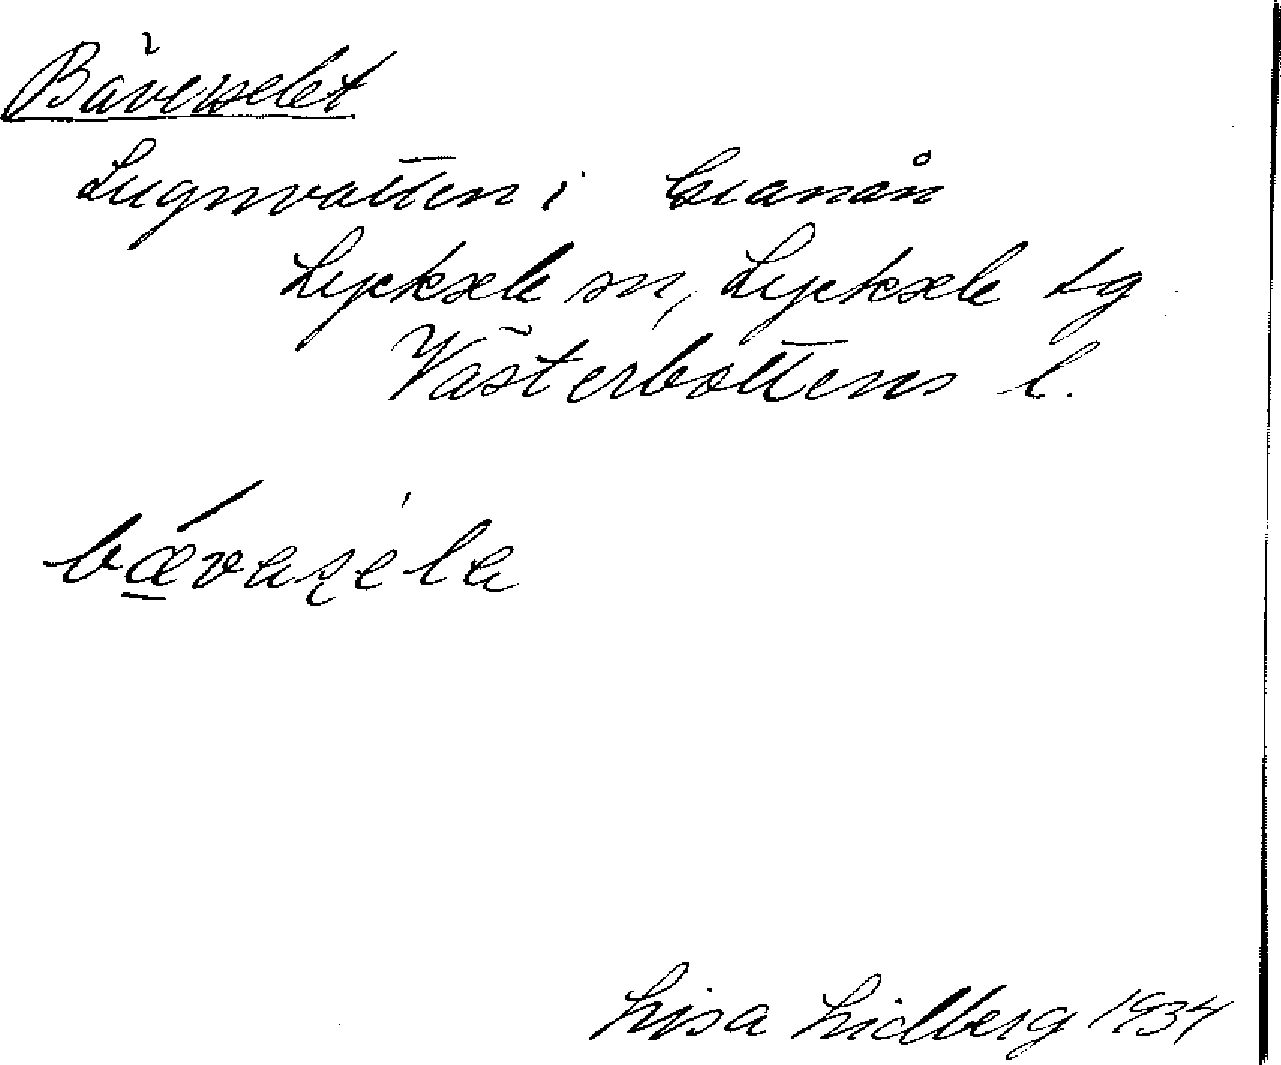 Bäverselet
Lugnvatten i Granån
Lycksele sn, Lycksele tg
Västerbottens l.
bǽvaṣéla
Lisa Lidberg 1934